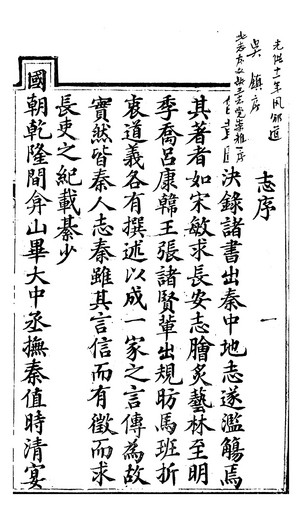 光緒十一年鳳邠道
吳鎮序
志序 一
決錄諸書出秦中地志遂濫觴焉
其著者如宋敏求長安志膾炙藝林至明
季喬呂康韓王張諸賢輩出規昉馬班折
衷道義各有撰述以成一家之言傳為故
實然皆秦人志秦雖其言信而有徵而求
長吏之紀載綦少
國朝乾隆間弇山畢大中丞撫秦值時清宴